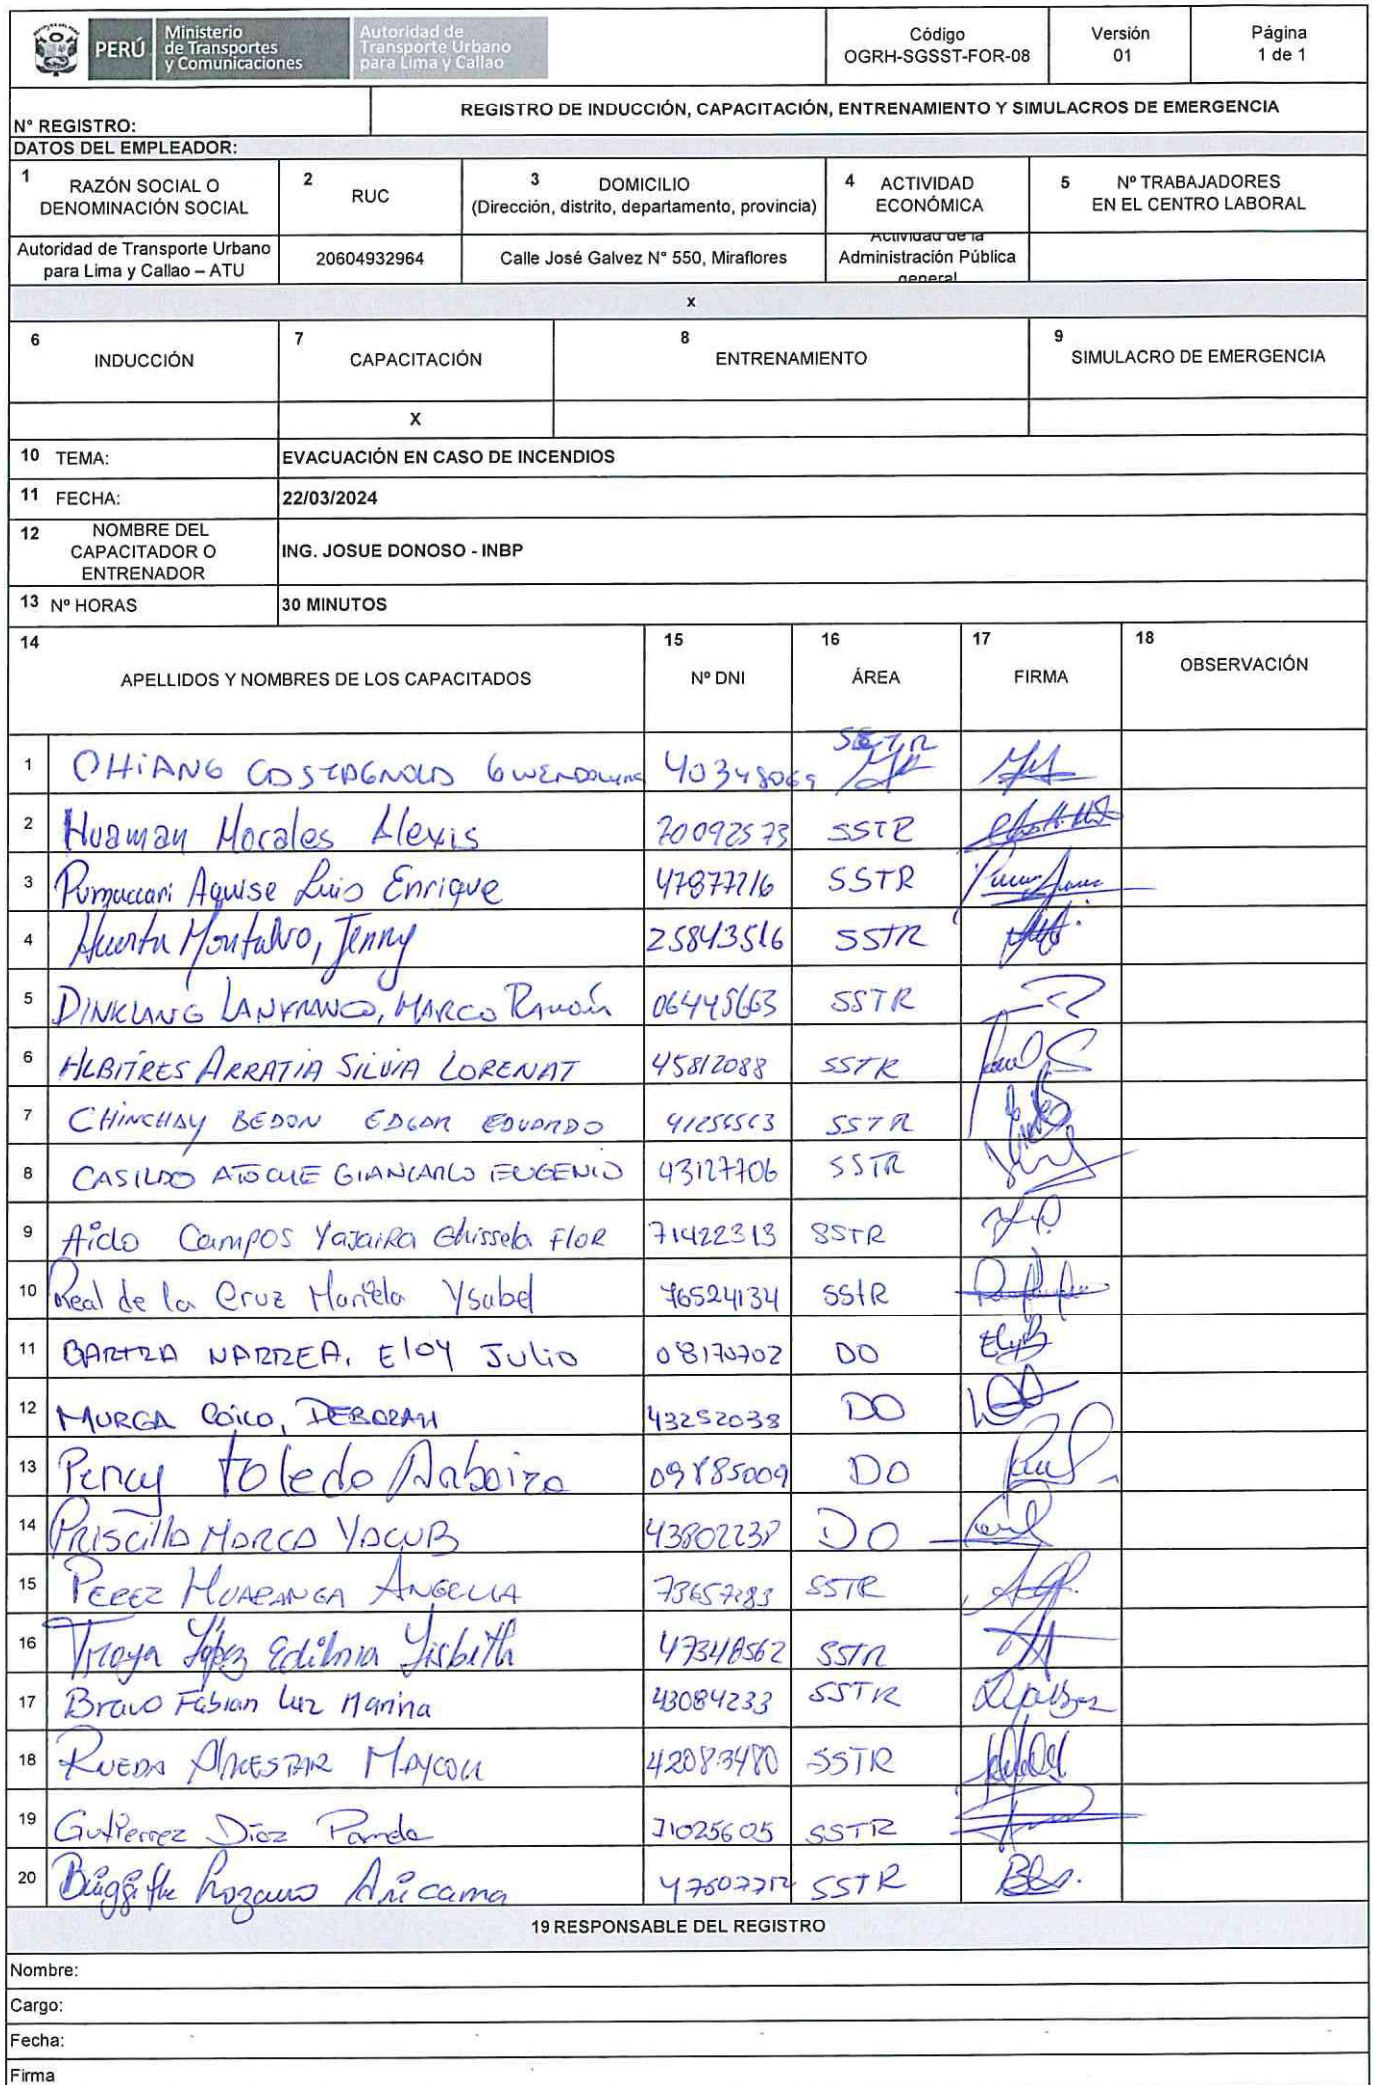 PERÚ
Ministerio
de Transportes
y Comunicaciones
Autoridad de
Transporte Urbano
para Lima y Callao
Código
OGRH-SGSST-FOR-08
Versión
01
Página
1 de 1
N° REGISTRO:
REGISTRO DE INDUCCIÓN, CAPACITACIÓN, ENTRENAMIENTO Y SIMULACROS DE EMERGENCIA
DATOS DEL EMPLEADOR:
1 RAZÓN SOCIAL O
DENOMINACIÓN SOCIAL
2 RUC
3 DOMICILIO
(Dirección, distrito, departamento, provincia)
4 ACTIVIDAD
ECONÓMICA
5 Nº TRABAJADORES
EN EL CENTRO LABORAL
Autoridad de Transporte Urbano
para Lima y Callao – ATU
20604932964
Calle José Galvez N° 550, Miraflores
Actividad de la
Administración Pública
general
x
6 INDUCCIÓN
7 CAPACITACIÓN
8 ENTRENAMIENTO
9 SIMULACRO DE EMERGENCIA
X
10 TEMA: EVACUACIÓN EN CASO DE INCENDIOS
11 FECHA: 22/03/2024
12 NOMBRE DEL
CAPACITADOR O
ENTRENADOR
ING. JOSUE DONOSO - INBP
13 Nº HORAS 30 MINUTOS
14 APELLIDOS Y NOMBRES DE LOS CAPACITADOS
15 Nº DNI
16 ÁREA
17 FIRMA
18 OBSERVACIÓN
1 CHIANG COSTAGNOLO 40348069 SSTR
2 Huaman Morales Alexis 70092573 SSTR
3 Pumaccari Aquise Luis Enrique 47877216 SSTR
4 Huerta Montalvo, Jenny 25843516 SSTR
5 DINKLANG LANFRANCO, MARCO Ramón 06445663 SSTR
6 ALBITRES ARRATIA SILVIA LORENAT 45812088 SSTR
7 CHINCHAY BEDON EDGAR EDUARDO SSTR
8 CASILDO ATOCHE GIANCARLO EUGENIO 43127706 SSTR
9 Aido Campos Yajaira Ghissela FloR 71422313 SSTR
10 Real de la Cruz Mariela Ysabel 76524134 SSTR
11 BARTRA NARREA, Eloy Julio 08170702 DO
12 MURGA COICO, DEBORAH 43252038 DO
13 Percy Toledo 09885009 DO
14 PRISCILLA MARCA YACUB 43802238 DO
15 PEREZ HUARANGA ANGELLA 73657283 SSTR
16 Troya López Edilmia Lisbeth 47348562 SSTR
17 Bravo Fabian Luz Marina 43084233 SSTR
18 RUEDA MAYCOLL 42083480 SSTR
19 Gutierrez Díaz Pamela 71025605 SSTR
20 Biggitte Lozano Aricama SSTR
19 RESPONSABLE DEL REGISTRO
Nombre:
Cargo:
Fecha:
Firma